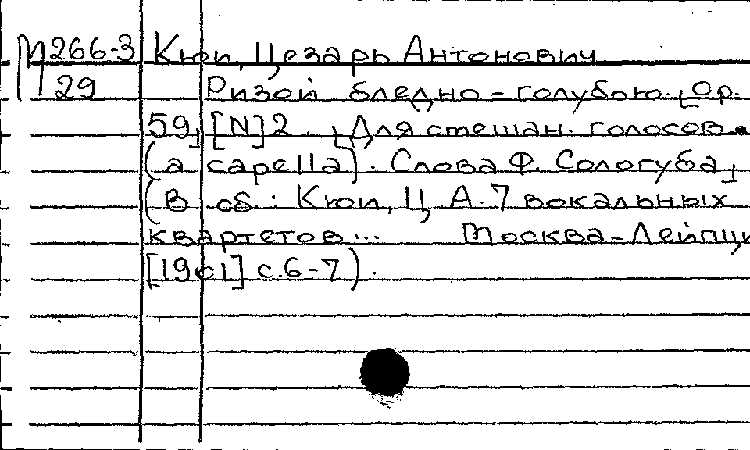 М266-3 Кюи, Цезарь Антонович
29 Ризой бледно-голубою. [Ор.
59] [N]2. [Для смешан. голосов
(a capella). Слова Ф. Сологуба]
(В сб.: Кюи, Ц. А. 7 вокальных
квартетов... Москва-Лейпци
[1901] с.6-7).